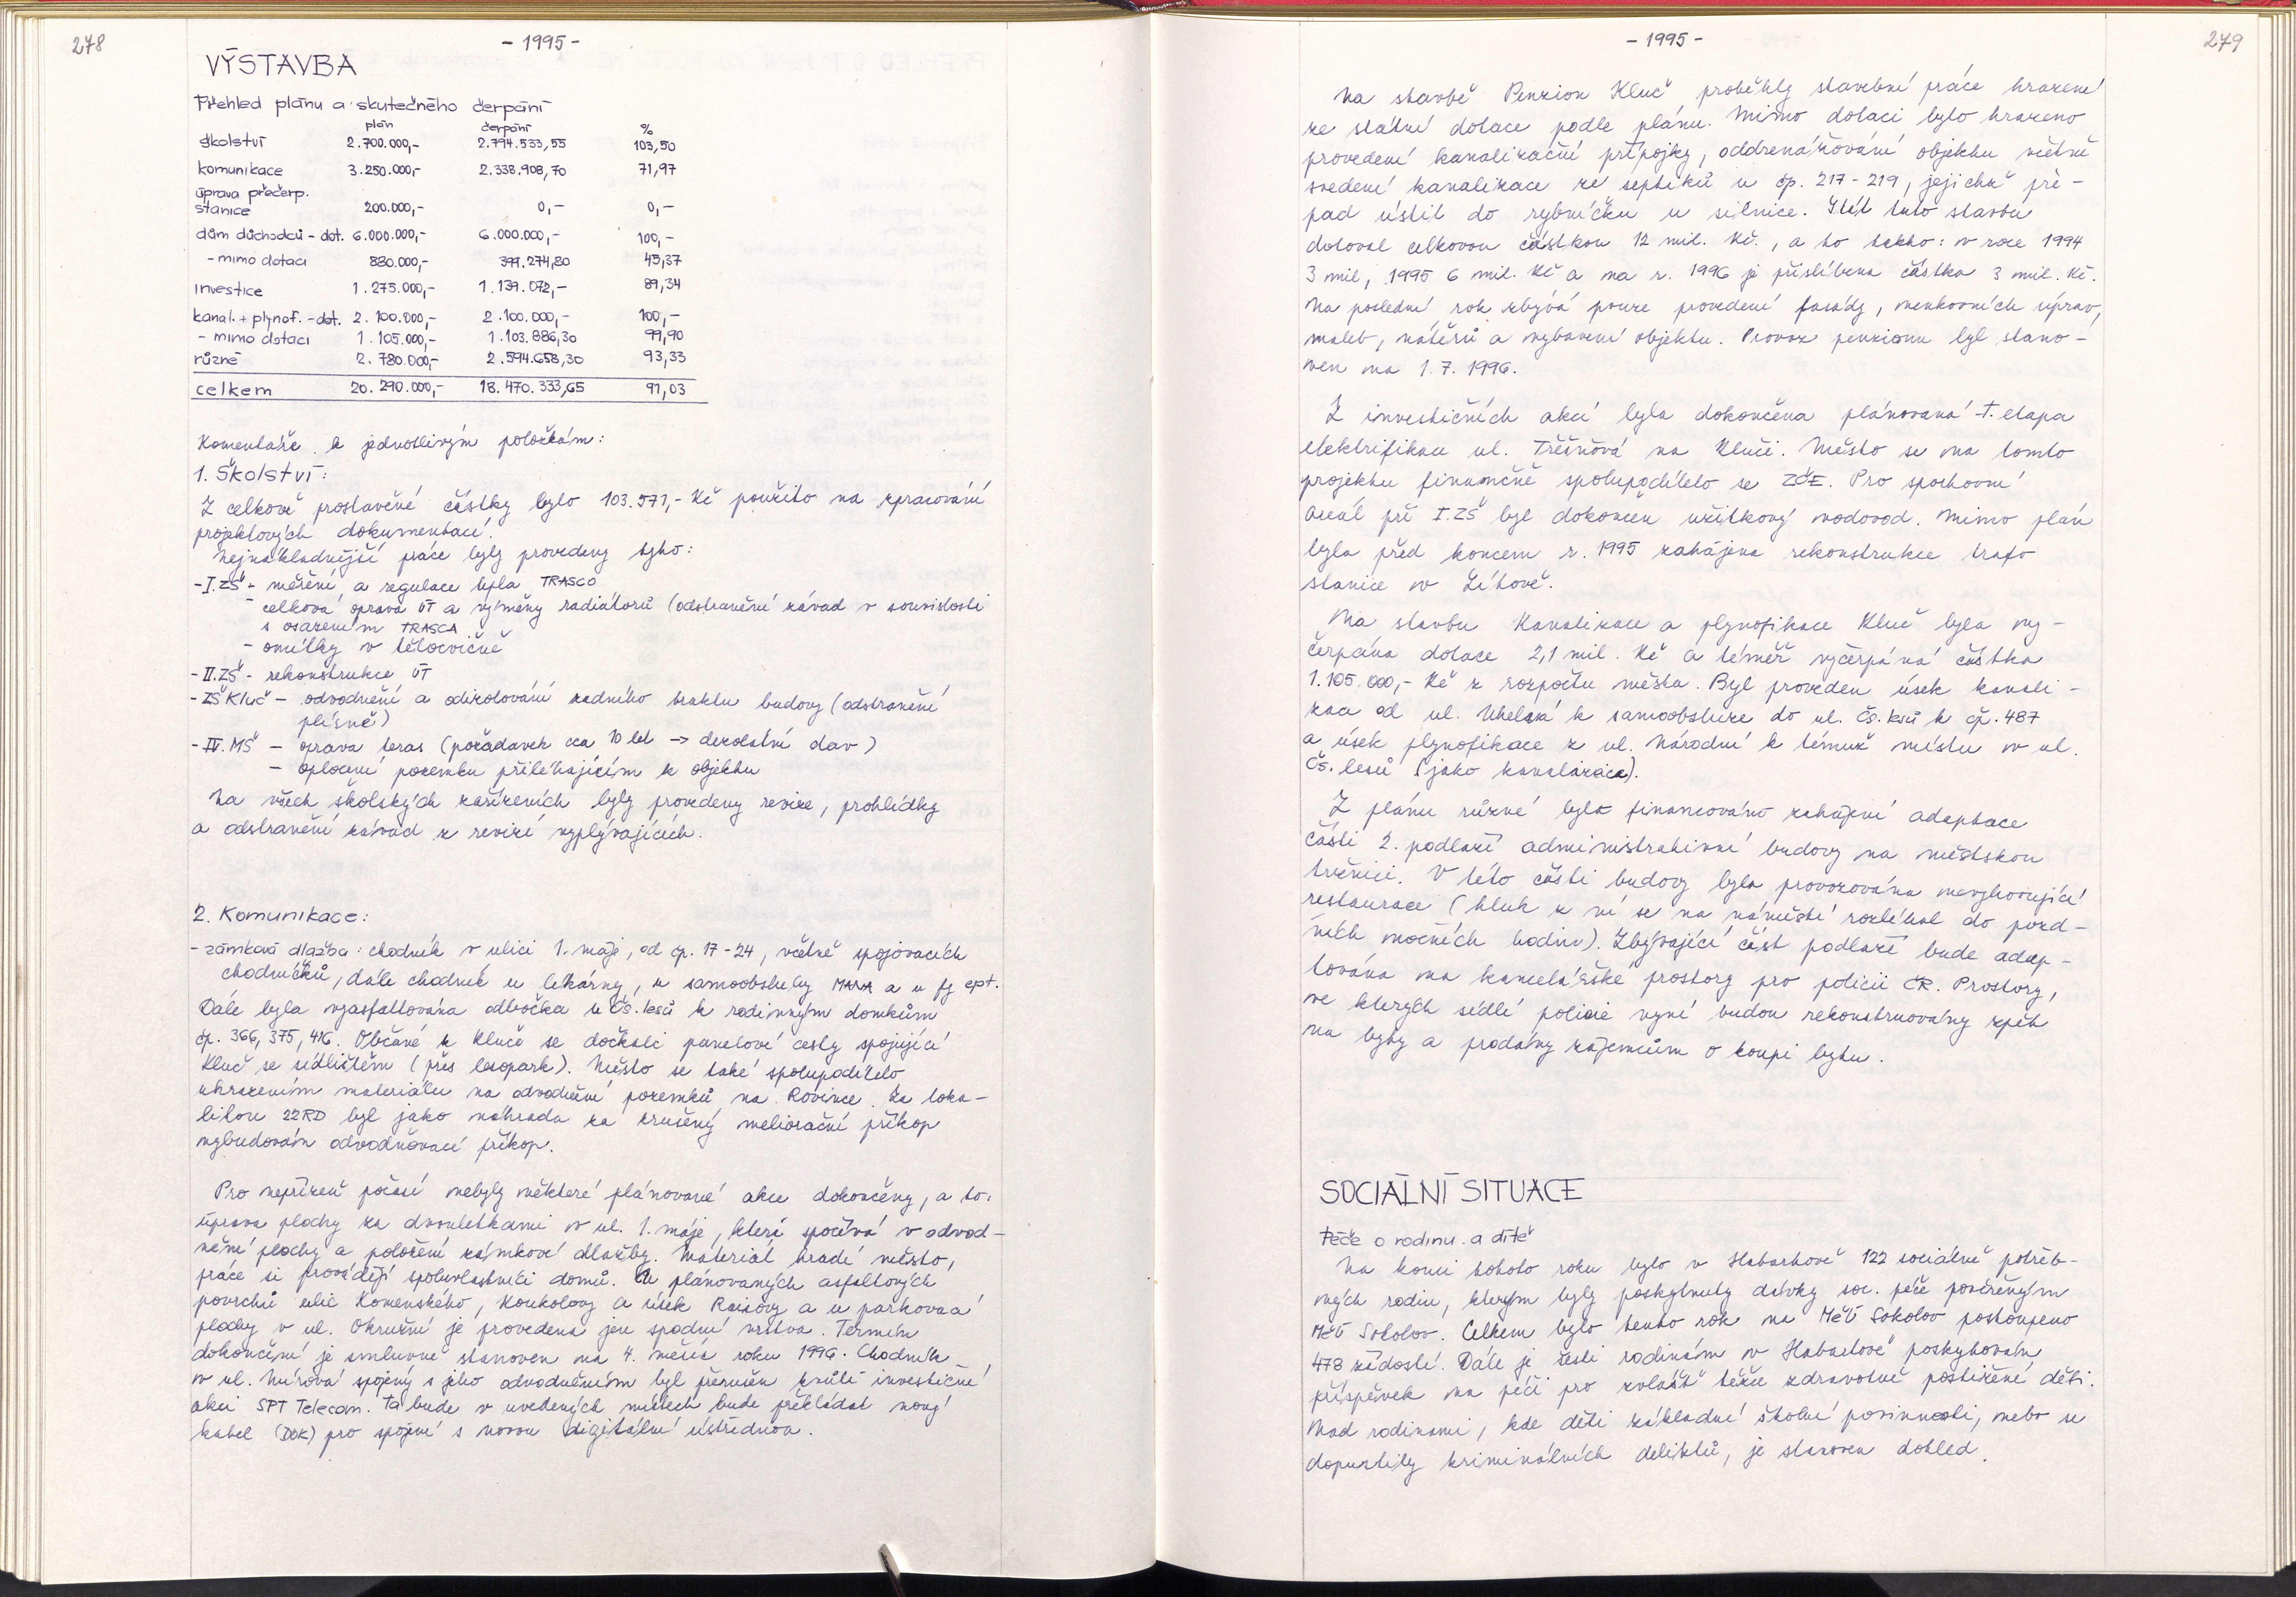 278
- 1995 -
VÝSTAVBA
Přehled plánu a skutečného čerpání
plán čerpání %
školství 2.700.000,- 2.794.533,55 103,50
komunikace 3.250.000,- 2.338.908,70 71,97
úprava přečerp.
stanice 200.000,- 0,- 0,-
dům důchodců - dot. 6.000.000,- 6.000.000,- 100,-
- mimo dotaci 880.000,- 399.274,80 45,37
investice 1.275.000,- 1.139.072,- 89,34
kanal. + plynof. - dot. 2.100.000,- 2.100.000,- 100,-
- mimo dotaci 1.105.000,- 1.103.886,30 99,90
různé 2.780.000,- 2.594.658,30 93,33
celkem 20.290.000,- 18.470.333,65 91,03
Komentáře k jednotlivým položkám:
1. Školství:
Z celkově prostavěné částky bylo 103.571,- Kč použito na zpracování
projektových dokumentací.
Nejnákladnější práce byly provedeny tyto:
- I. ZŠ - měření a regulace tepla TRASCO
- celková oprava ÚT a výměny radiátorů (odstranění závad v souvislosti
s osazením TRASCA
- omítky v tělocvičně
- II. ZŠ - rekonstrukce ÚT
- ZŠ Kluč - odvodnění a odizolování zadního traktu budovy (odstranění
plísně)
- IV. MŠ - oprava teras (požadavek cca 10 let -> dezolatní stav)
- oplocení pozemku přiléhajícím k objektu
Na všech školských zařízeních byly provedeny revize, prohlídky
a odstranění závad z revizí vyplývajících.
2. Komunikace:
- zámková dlažba: chodník v ulici 1. máje, od čp. 17-24, včetně spojovacích
chodníčků, dále chodník u lékárny, u samoobsluhy MANA a u fy ept.
Dále byla vyasfaltována odbočka u Čs. lesů k rodinným domkům
čp. 366, 375, 416. Občané z Kluče se dočkali panelové cesty spojující
Kluč se sídlištěm (přes lesopark). Město se také spolupodílelo
uhrazením materiálu na odvodnění pozemků na Rovince. Za loka-
litou 22RD byl jako náhrada za zrušený meliorační příkop
vybudován odvodňovací příkop.
Pro nepřízeň počasí nebyly některé plánované akce dokončeny, a to:
úprava plochy za dvouletkami v ul. 1. máje, která spočívá v odvod-
nění plochy a položení zámkové dlažby. Materiál hradí město,
práce si provádějí spoluvlastníci domů. U plánovaných asfaltových
povrchů ulic Komenského, Koukolovy a úsek Raisovy a u parkovací
plochy v ul. Okružní je provedena jen spodní vrstva. Termín
dokončení je smluvně stanoven na 4. měsíc roku 1996. Chodník
v ul. Mírová spojený s jeho odvodněním byl přerušen kvůli investiční
akci SPT Telecom. Ta bude v uvedených místech bude překládat nový
kabel (DOK) pro spojení s novou digitální ústřednou.
- 1995 -
279
Na stavbě Penzion Kluč proběhly stavební práce hrazené
ze státní dotace podle plánu. Mimo dotaci bylo hrazeno
provedení kanalizační přípojky, oddrenážování objektu včetně
svedení kanalizace ze septiků u čp. 217-219, jejichž pře-
pad ústil do rybníčku u silnice. Stát tuto stavbu
dotoval celkovou částkou 12 mil. Kč., a to takto: v roce 1994
3 mil, 1995 6 mil. Kč a na r. 1996 je přislíbena částka 3 mil. Kč.
Na poslední rok zbývá pouze provedení fasády, venkovních úprav,
maleb, nátěrů a vybavení objektu. Provoz penzionu byl stano-
ven na 1.7.1996.
Z investičních akcí byla dokončena plánovaná I. etapa
elektrifikace ul. Třešňová na Kluči. Město se na tomto
projektu finančně spolupodílelo se ZČE. Pro sportovní
areál při I. ZŠ byl dokončen užitkový vodovod. Mimo plán
byla před koncem r. 1995 zahájena rekonstrukce trafo
stanice v Lítově.
Na stavbu Kanalizace a plynofikace Kluč byla vy-
čerpána dotace 2,1 mil. Kč a téměř vyčerpána částka
1.105.000,- Kč z rozpočtu města. Byl proveden úsek kanali-
zace od ul. Uhelná k samoobsluze do ul. Čs. lesů k čp. 487
a úsek plynofikace z ul. Národní k témuž místu v ul.
Čs. lesů (jako kanalizace).
Z plánu různé bylo financováno zahájení adaptace
části 2. podlaží administrativní budovy na městskou
tržnici. V této části budovy byla provozována nevyhovující
restaurace (hluk z ní se na náměstí rozléhal do pozd-
ních nočních hodin). Zbývající část podlaží bude adap-
tována na kancelářské prostory pro policii ČR. Prostory,
ve kterých sídlí policie nyní budou rekonstruovány zpět
na byty a prodány zájemcům o koupi bytu.
SOCIÁLNÍ SITUACE
Péče o rodinu a dítě
Na konci tohoto roku bylo v Habartově 122 sociálně potřeb-
ných rodin, kterým byly poskytnuty dávky soc. péče pověřeným
MěÚ Sokolov. Celkem bylo tento rok na MěÚ Sokolov postoupeno
478 žádostí. Dále je šesti rodinám v Habartově poskytován
příspěvek na péči pro zvlášť těžce zdravotně postižené děti.
Nad rodinami, kde děti základní školní povinnosti, nebo se
dopustily kriminálních deliktů, je stanoven dohled.